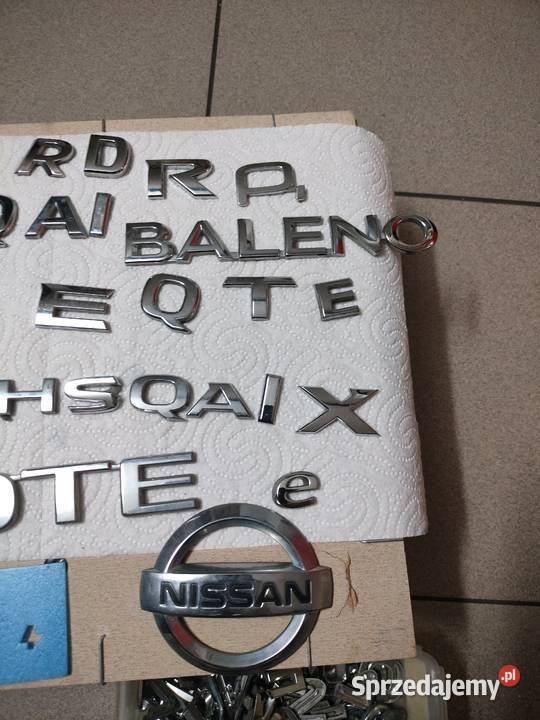 RD R Q
QAI BALENO
E Q T E
HSQAI X
OTE e
NISSAN
Sprzedajemy.pl